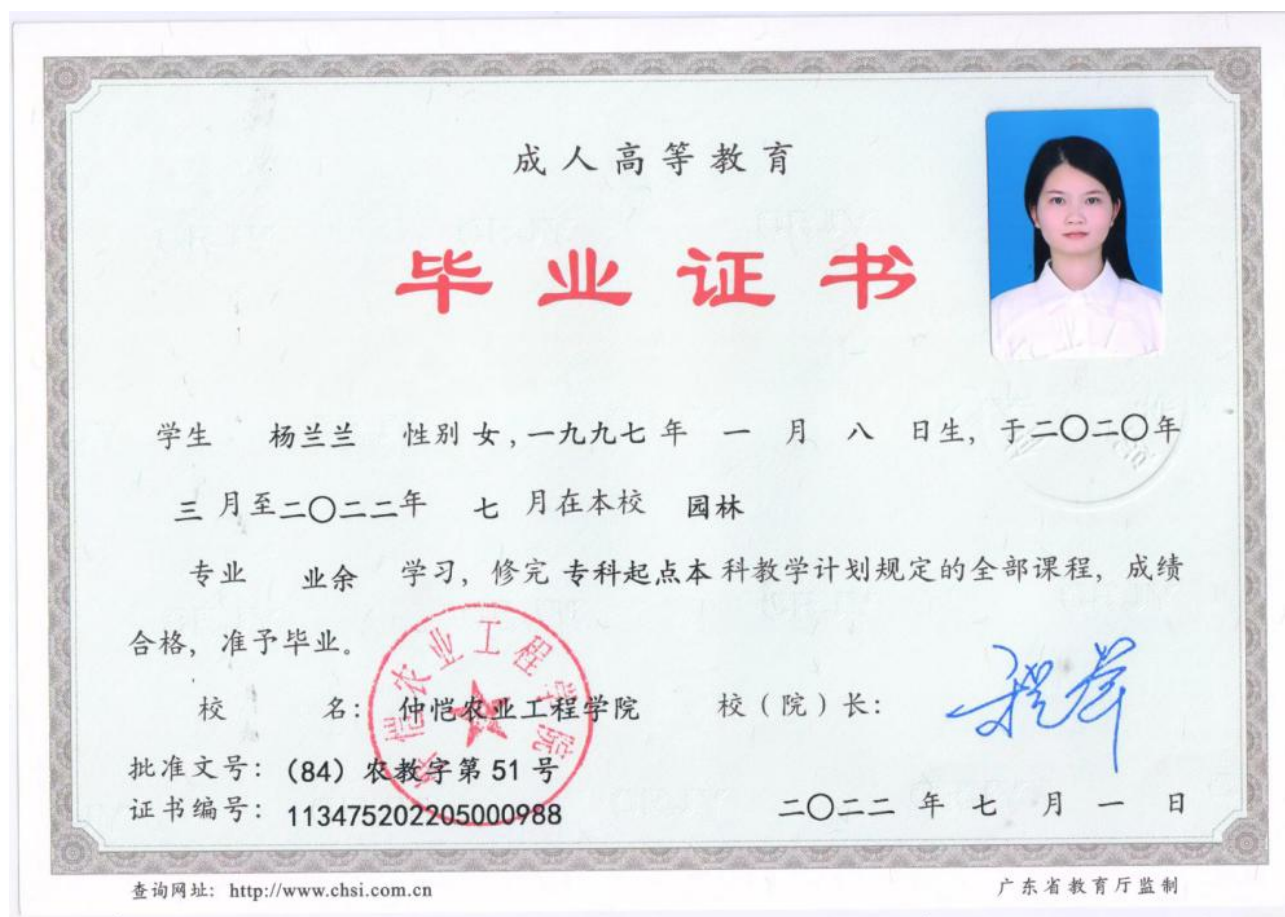 成人高等教育
毕业证书
学生 杨兰兰 性别 女，一九九七 年 一 月 八 日生，于二〇二〇年
三 月至二〇二二年 七 月在本校 园林
专业 业余 学习，修完 专科起点本 科教学计划规定的全部课程，成绩
合格，准予毕业。
校 名： 仲恺农业工程学院 校（院）长：
批准文号：（84）农教字第 51 号
证书编号：113475202205000988 二〇二二 年 七 月 一 日
查询网址：http://www.chsi.com.cn 广东省教育厅监制